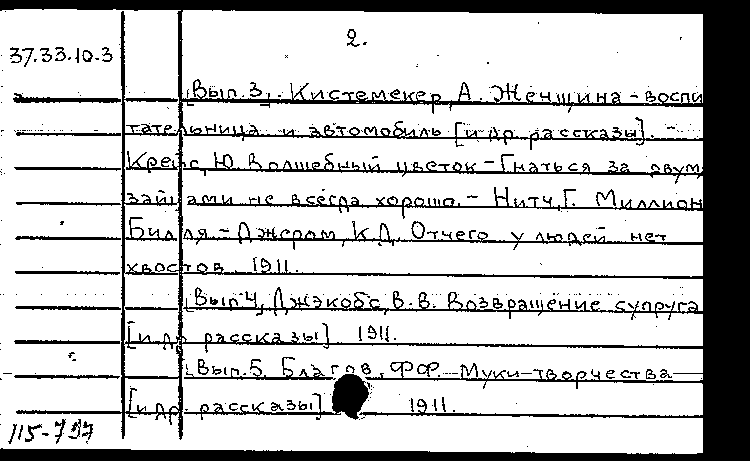 2.
37.33.10.3
[Вып.3]. Кистемекер, А. Женщина - воспи
тательница и автомобиль [и др. рассказы]. -
Крейс, Ю. Волшебный цветок - Гнаться за двум
зайцами не всегда хорошо. - Нитч, Г. Миллион
Билля - Джером, К.Д. Отчего у людей нет
хвостов. 1911.
[Вып 4], Джэкобс, В.В. Возвращение супруга
[и др рассказы] 1911.
[Вып. 5. Благов, Ф.Ф. Муки творчества
[и др. рассказы] 1911.
115-797